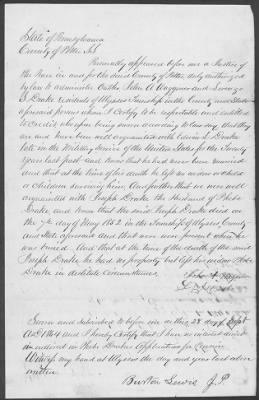 State of Pennsylvania
County of Potter SS
Personally appeared before me a Justice of
the Peace in and for the said County of Potter, duly authorized
by law to administer Oaths John A. and Lorenzo
G. Drake residents of Ulysses Township in the County and State
aforesaid persons whom I Certify to be respectable and entitled
to credit who upon being sworn according to law say that they
are and have been well acquainted with Edwin L. Drake
late in the Military Service of the United States for the Twenty
Years last past and know that he had never been married
and that at the time of his death he left no widow or child
or children surviving him. And further that we were well
acquainted with Joseph Drake the Husband of Phebe
Drake, and know that the said Joseph Drake died on
the day of May 1852 in the Township of Ulysses County
and State aforesaid and that were present when he
was buried. And that at the time of the death of the said
Joseph Drake he had no property but left his widow Phebe
Drake in destitute circumstances.
John A.
Sworn and Subscribed to before me on this 28 day
AD 1864 and I hereby Certify that I have no interest direct
or indirect in Phebe Drakes Application for Pension
Witness my hand at Ulysses the day and year last above
written
Burton Lewis J.P.